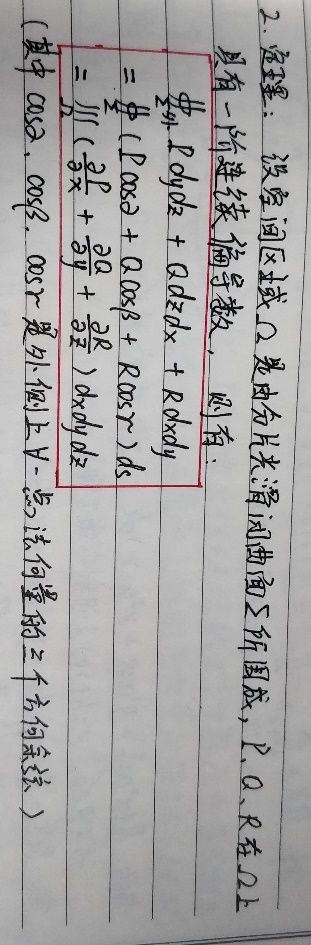 2. 定理：设空间区域Ω是由分片光滑闭曲面Σ所围成，P、Q、R在Ω上
具有一阶连续偏导数，则有：
∯Σ外 Pdydz + Qdzdx + Rdxdy
= ∯Σ (Pcosα + Qcosβ + Rcosγ) ds
= ∭Ω (∂P/∂x + ∂Q/∂y + ∂R/∂z) dxdydz
(其中 cosα、cosβ、cosγ 是外侧上∀一点法向量的三个方向余弦)